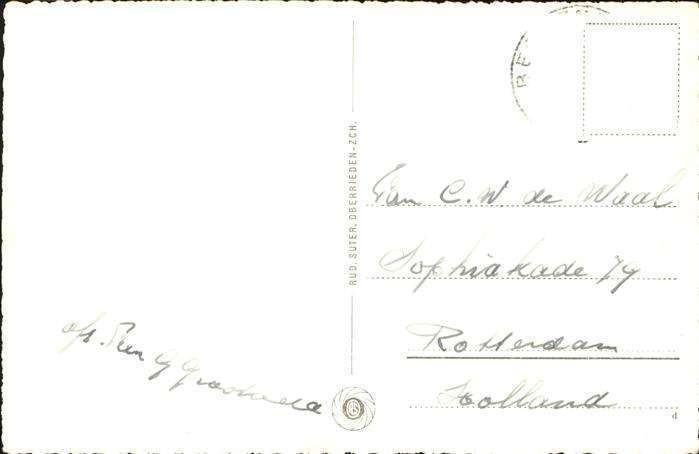 BE
RUD. SUTER, OBERRIEDEN-ZCH.
Fam C. W de Waal
Sophiakade 79
Rotterdam
Holland
afz.
d